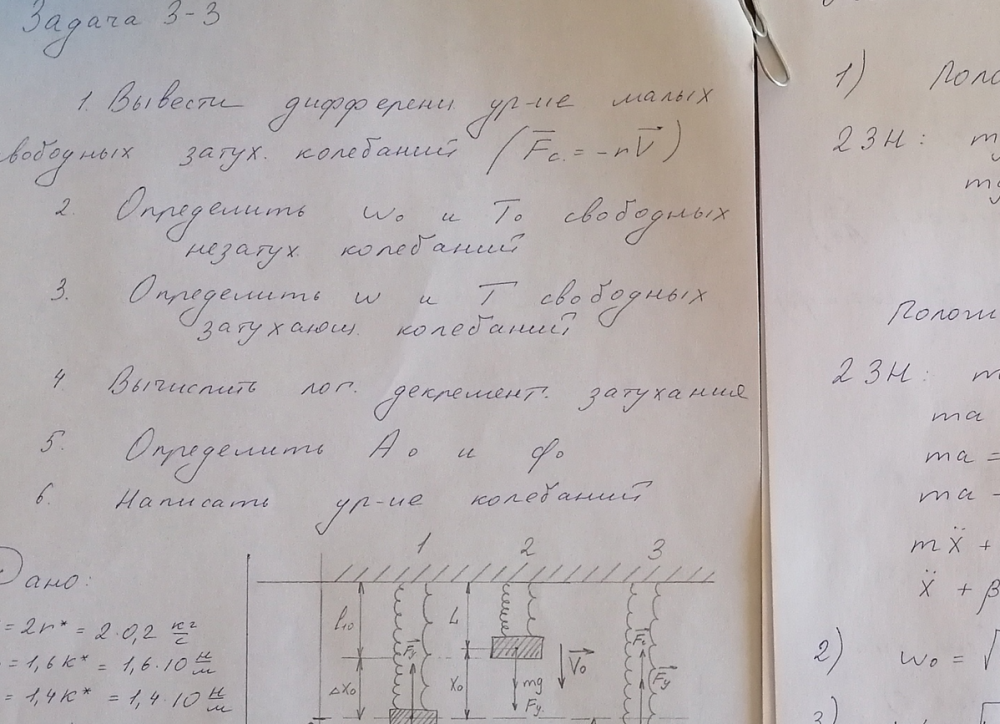 Задача 3-3
1. Вывести дифференц ур-ие малых
свободных затух. колебаний (F̅c. = -rV⃗)
2. Определить ω₀ и T₀ свободных
незатух. колебаний
3. Определить ω и T свободных
затухающ. колебаний
4 Вычислить лог. декремент. затухания
5. Определить A₀ и φ₀
6. Написать ур-ие колебаний
Дано:
= 2r* = 2·0,2 кг/с
= 1,6k* = 1,6·10 н/м
= 1,4k* = 1,4·10 н/м
1 2 3
l₁₀ Fy L Fc
V⃗₀ Fy
Δx₀ x₀ mg
Fy
1)
2ЗН: m
mg
2ЗН: m
ma
ma =
ma -
mẍ +
ẍ + β
2) ω₀ = √
3)